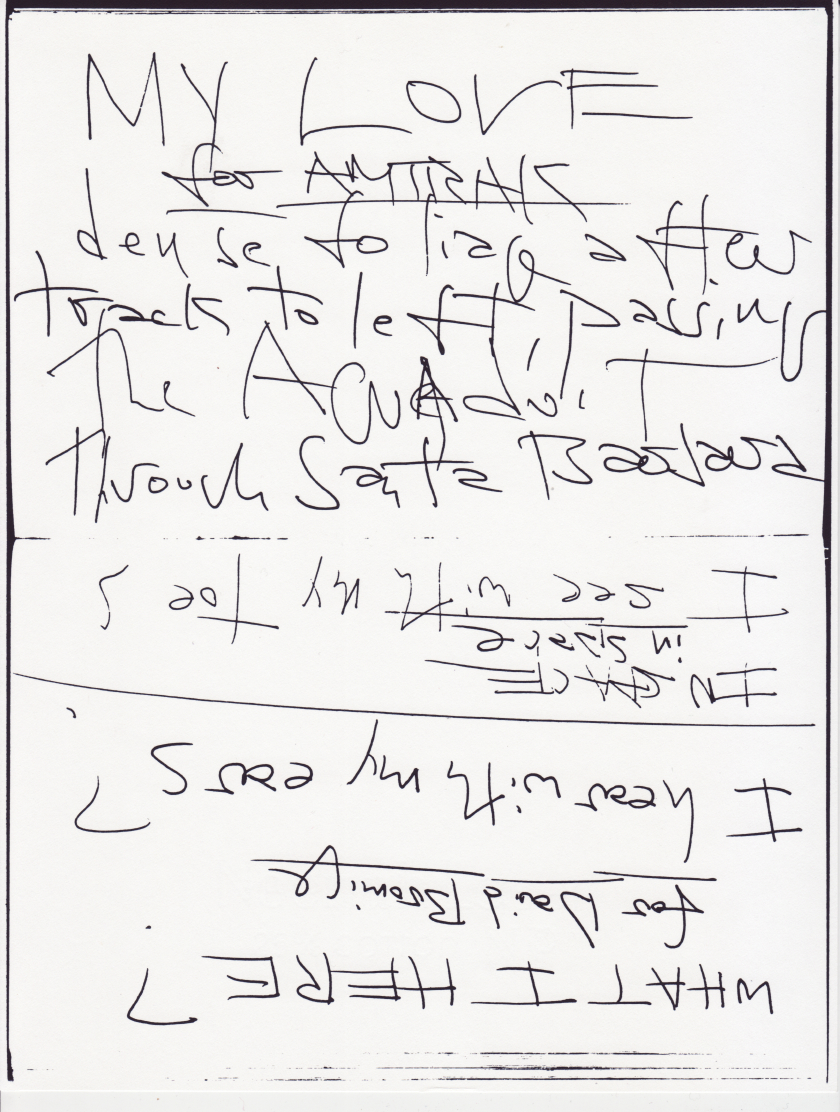 MY LOVE
for AMTRAK
dense foliag after
track to left, passing
The AQUADuiT
Through Santa Barbara
WHAT I HERE ?
for David Bromige
I hear with my ears ?
IN
in space
I see with my toes